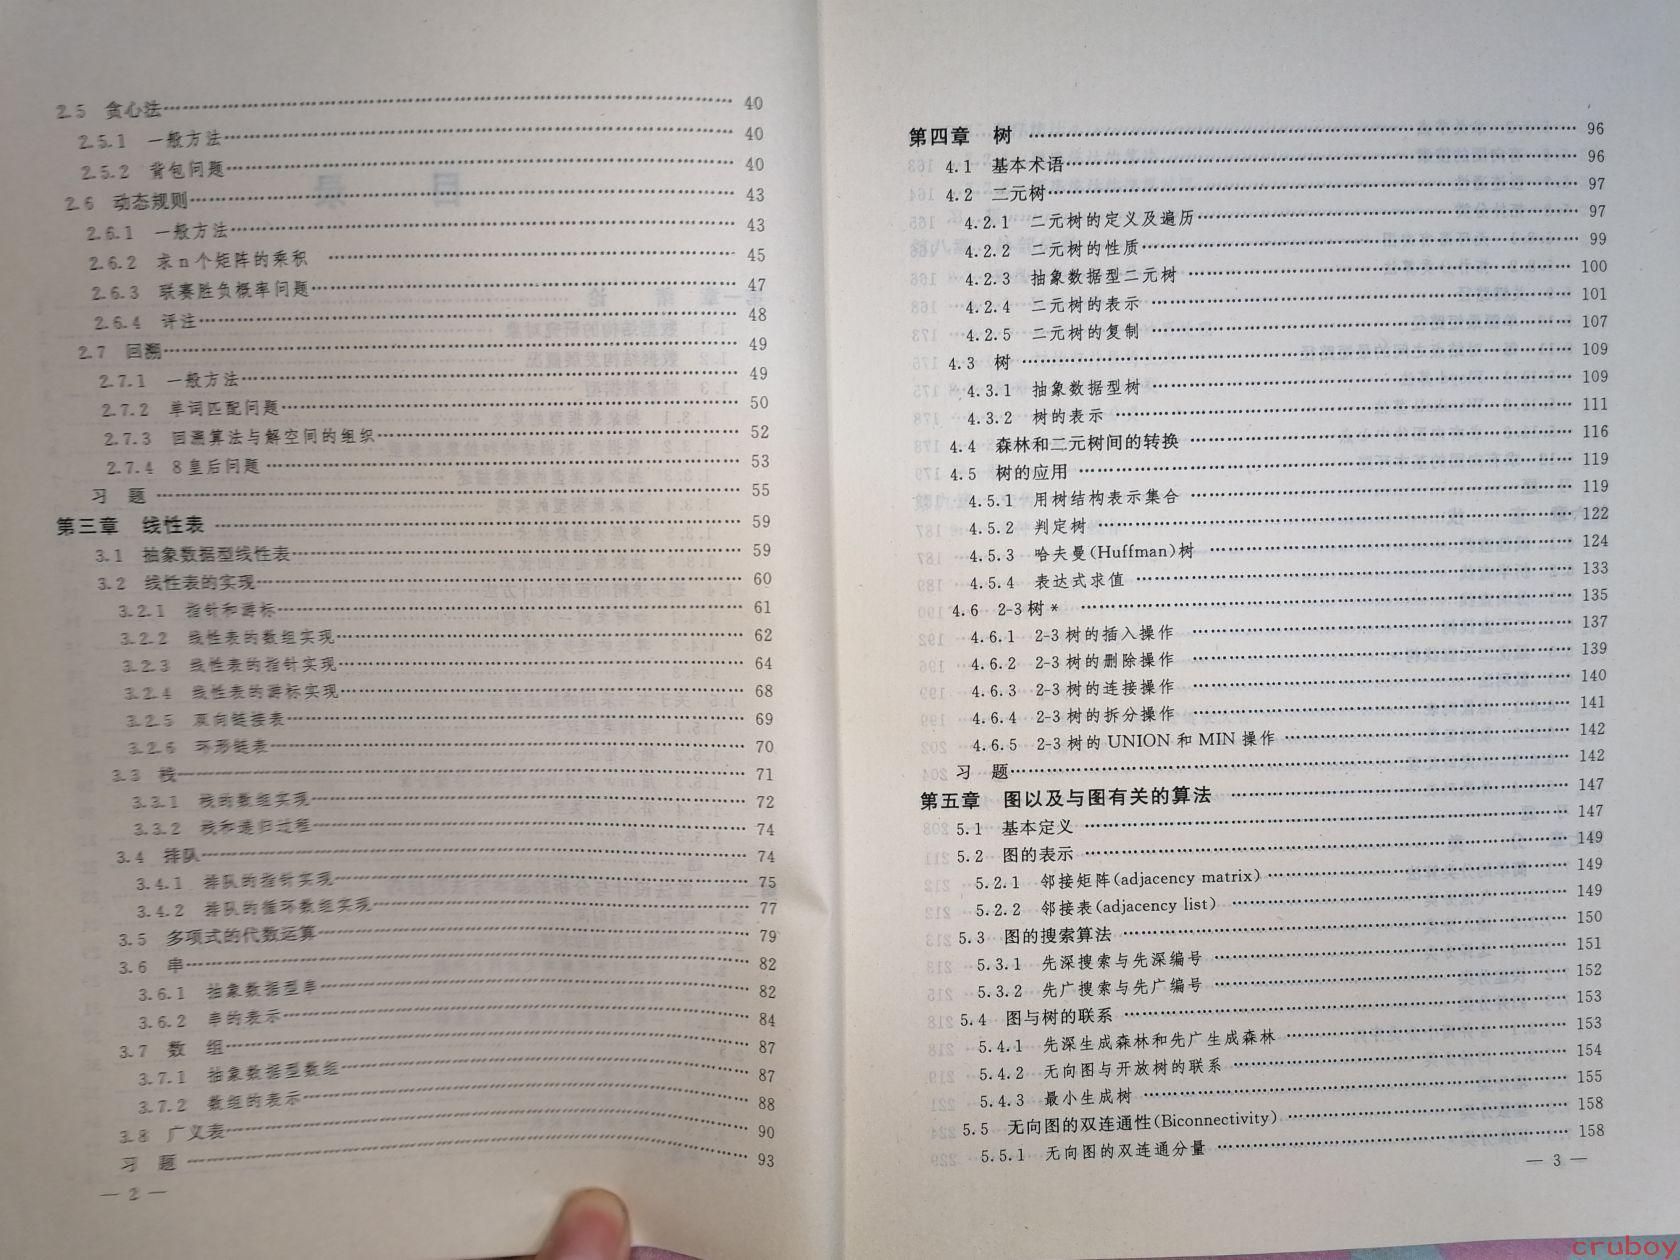 2.5 贪心法 40
2.5.1 一般方法 40
2.5.2 背包问题 40
2.6 动态规则 43
2.6.1 一般方法 43
2.6.2 求n个矩阵的乘积 45
2.6.3 联赛胜负概率问题 47
2.6.4 评注 48
2.7 回溯 49
2.7.1 一般方法 49
2.7.2 单词匹配问题 50
2.7.3 回溯算法与解空间的组织 52
2.7.4 8皇后问题 53
习 题 55
第三章 线性表 59
3.1 抽象数据型线性表 59
3.2 线性表的实现 60
3.2.1 指针和游标 61
3.2.2 线性表的数组实现 62
3.2.3 线性表的指针实现 64
3.2.4 线性表的游标实现 68
3.2.5 双向链接表 69
3.2.6 环形链表 70
3.3 栈 71
3.3.1 栈的数组实现 72
3.3.2 栈和递归过程 74
3.4 排队 74
3.4.1 排队的指针实现 75
3.4.2 排队的循环数组实现 77
3.5 多项式的代数运算 79
3.6 串 82
3.6.1 抽象数据型串 82
3.6.2 串的表示 84
3.7 数 组 87
3.7.1 抽象数据型数组 87
3.7.2 数组的表示 88
3.8 广义表 90
习 题 93
— 2 —
第四章 树 96
4.1 基本术语 96
4.2 二元树 97
4.2.1 二元树的定义及遍历 97
4.2.2 二元树的性质 99
4.2.3 抽象数据型二元树 100
4.2.4 二元树的表示 101
4.2.5 二元树的复制 107
4.3 树 109
4.3.1 抽象数据型树 109
4.3.2 树的表示 111
4.4 森林和二元树间的转换 116
4.5 树的应用 119
4.5.1 用树结构表示集合 119
4.5.2 判定树 122
4.5.3 哈夫曼(Huffman)树 124
4.5.4 表达式求值 133
4.6 2-3树* 135
4.6.1 2-3树的插入操作 137
4.6.2 2-3树的删除操作 139
4.6.3 2-3树的连接操作 140
4.6.4 2-3树的拆分操作 141
4.6.5 2-3树的UNION和MIN操作 142
习 题 142
第五章 图以及与图有关的算法 147
5.1 基本定义 147
5.2 图的表示 149
5.2.1 邻接矩阵(adjacency matrix) 149
5.2.2 邻接表(adjacency list) 149
5.3 图的搜索算法 150
5.3.1 先深搜索与先深编号 151
5.3.2 先广搜索与先广编号 152
5.4 图与树的联系 153
5.4.1 先深生成森林和先广生成森林 153
5.4.2 无向图与开放树的联系 154
5.4.3 最小生成树 155
5.5 无向图的双连通性(Biconnectivity) 158
5.5.1 无向图的双连通分量 158
— 3 —
cruboy